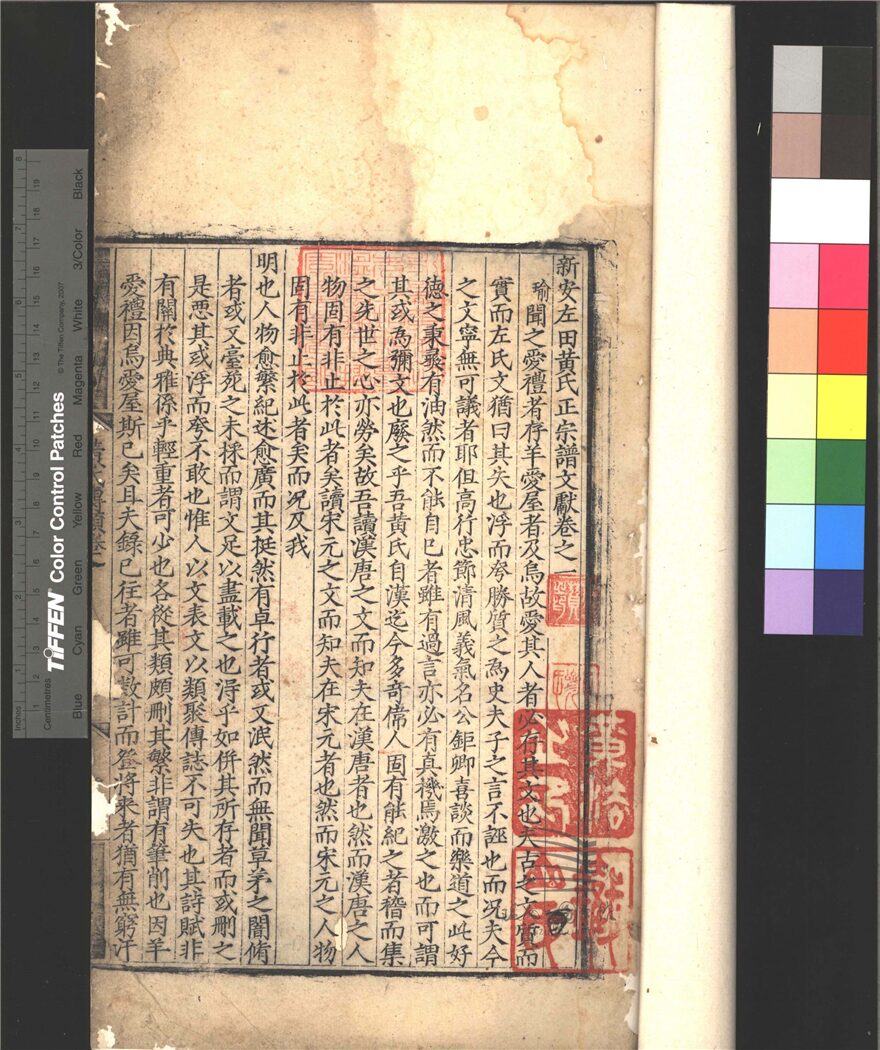 新安左田黃氏正宗譜文獻卷之一
瑜聞之愛禮者存羊愛屋者及烏故愛其人者必存其文也夫古之文質而
實而左氏文猶曰其失也浮而夸勝質之為史夫子之言不誣也而況夫今
之文寧無可議者耶但高行忠節清風義氣名公鉅卿喜談而樂道之此好
德之秉彛有油然而不能自已者雖有過言亦必有真機焉激之也而可謂
其或為彌文也廢之乎吾黃氏自漢迄今多奇偹人固有能紀之者稽而集
之先世之心亦勞矣故吾讀漢唐之文而知夫在漢唐者也然而漢唐之人
物固有非止於此者矣讀宋元之文而知夫在宋元者也然而宋元之人物
固有非止於此者矣而況及我
明也人物愈繁紀述愈廣而其挺然有卓行者或又泯然而無聞草茅之闇脩
者或又臺死之未採而謂文足以盡載之也淂乎如併其所存者而或刪之
是惡其或浮而夸不敢也惟人以文表文以類聚傳誌不可失也其詩賦非
有關於典雅係乎輕重者可少也各從其類頗刪其繁非謂有筆削也因羊
愛禮因烏愛屋斯已矣且夫錄已往者雖可數計而登將來者猶有無窮汗
TIFFEN Color Control Patches
© The Tiffen Company, 2007
Inches
Centimetres
Blue Cyan Green Yellow Red Magenta White 3/Color Black